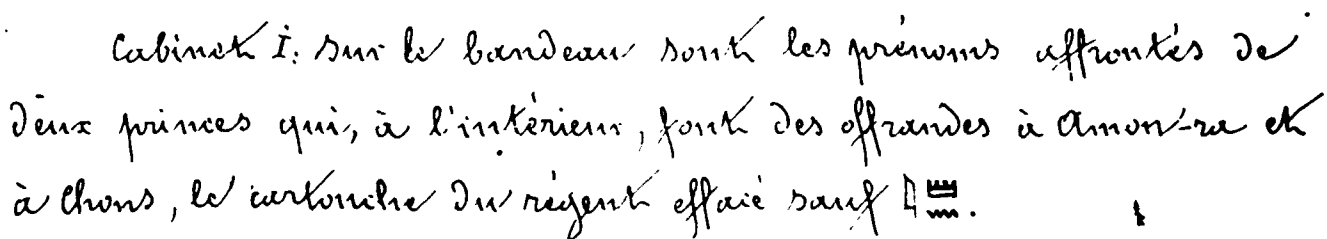 Cabinet I. Sur le bandeau sont les prénoms affrontés de
deux princes qui, à l'intérieur, font des offrandes à Amon-ra et
à Chons, le cartouche du régent effacé sauf 𓇋𓏠𓈖.